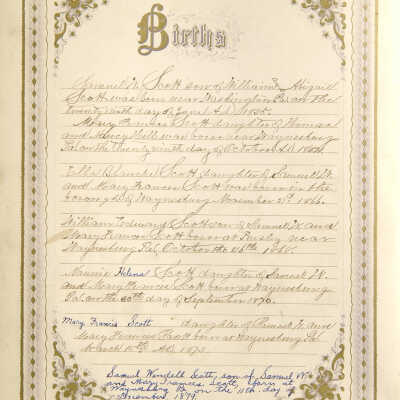 Births
Samuel W. Scott son of William & Abigail
Scott was born near Washington Pa. on the
twenty ninth day of A.D.
Mary Frances Scott daughter of Thomas
and Nancy Hill was born near Waynesburg
Pa. on the twenty ninth day of October A.D.
Ella Blanche Scott daughter of Samuel W.
and Mary Frances Scott was born in the
borough of Waynesburg November 1866.
William Scott son of Samuel W. and
Mary Frances Scott born at near
Waynesburg Pa. October the 26th 1868.
Nannie Helena Scott daughter of Samuel W.
and Mary Frances Scott born at Waynesburg
Pa. on the day of September 1870.
Mary Francis Scott daughter of Samuel W. and
Mary Frances Scott born at Waynesburg Pa.
March A.D. 1873
Samuel Wendell Scott, son of Samuel W.
and Mary Frances Scott, born at
Waynesburg Pa on the day of
1879